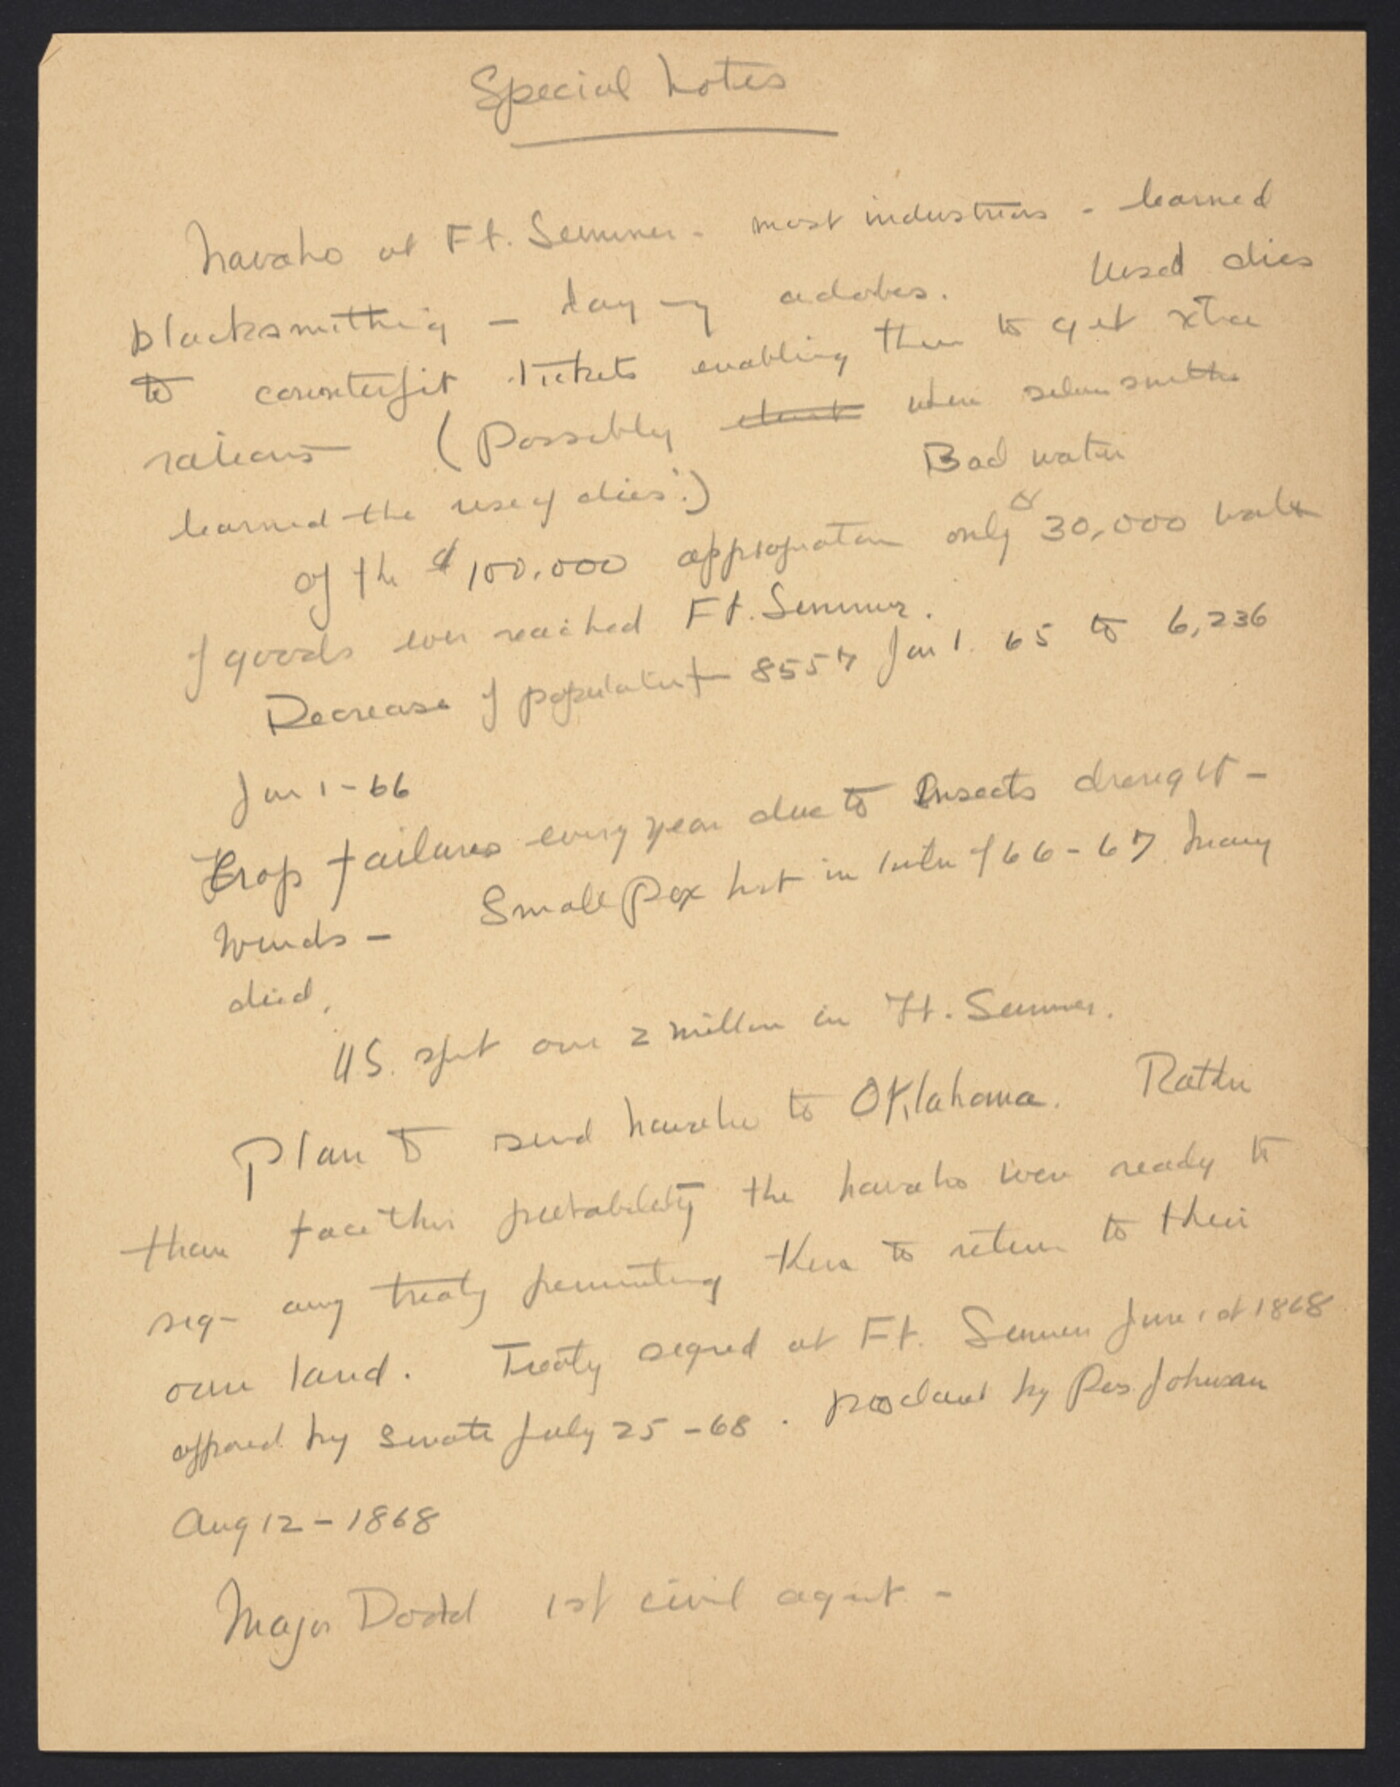 Special Notes
Navaho at Ft. Sumner - most industrious - learned
blacksmithing - laying adobes. Used dies
to counterfit tickets enabling them to get xtra
rations (Possibly when silversmiths
learned the use of dies.)
Bad water
of the $100,000 appropriation only 30,000 worth
of goods ever reached Ft. Sumner.
Decrease of population 8557 Jan 1. 65 to 6,236
Jan 1-66
Crop failures every year due to Insects drought -
Winds - Small Pox hit in winter of 66-67 many
died.
US. spent over 2 million in Ft. Sumner.
Plan to send Navaho to Oklahoma. Rather
than face this probability the Navaho were ready to
sign any treaty permitting them to return to their
own land. Treaty signed at Ft. Sumner June 1st 1868
approved by Senate July 25-68. proclaimed by Pres. Johnson
Aug 12-1868
Major Dodd 1st civil agent -